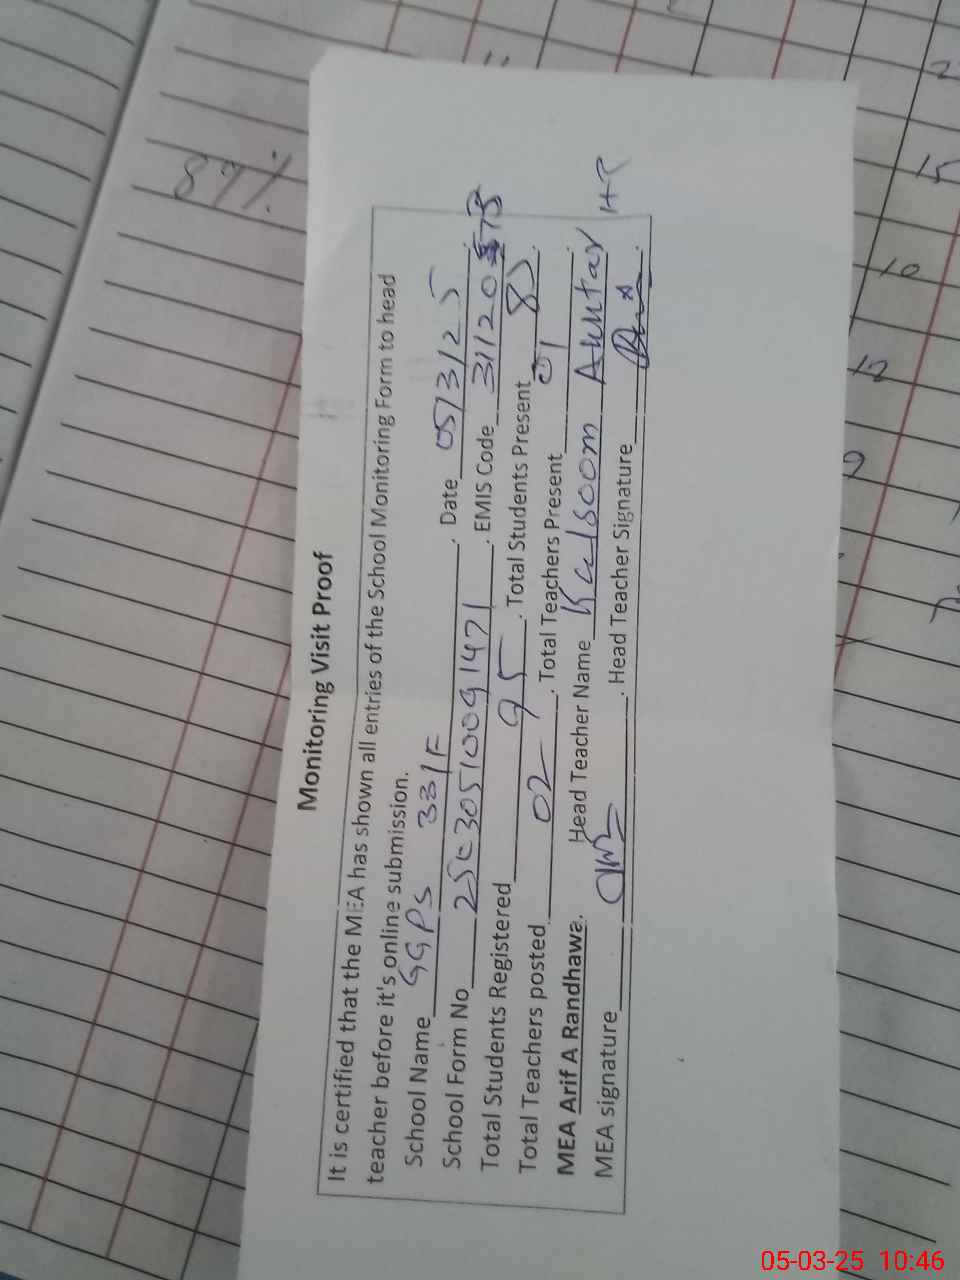 Monitoring Visit Proof
It is certified that the MEA has shown all entries of the School Monitoring Form to head
teacher before it's online submission.
School Name GGPS 331F . Date 05/3/25
School Form No 25C30510091471 . EMIS Code 31120
Total Students Registered 95 . Total Students Present 85 .
Total Teachers posted 02 . Total Teachers Present 01
MEA Arif A Randhawa. Head Teacher Name Kalsoom Akhtar HT
MEA signature . Head Teacher Signature .
89%
15
10
12
9
05-03-25 10:46